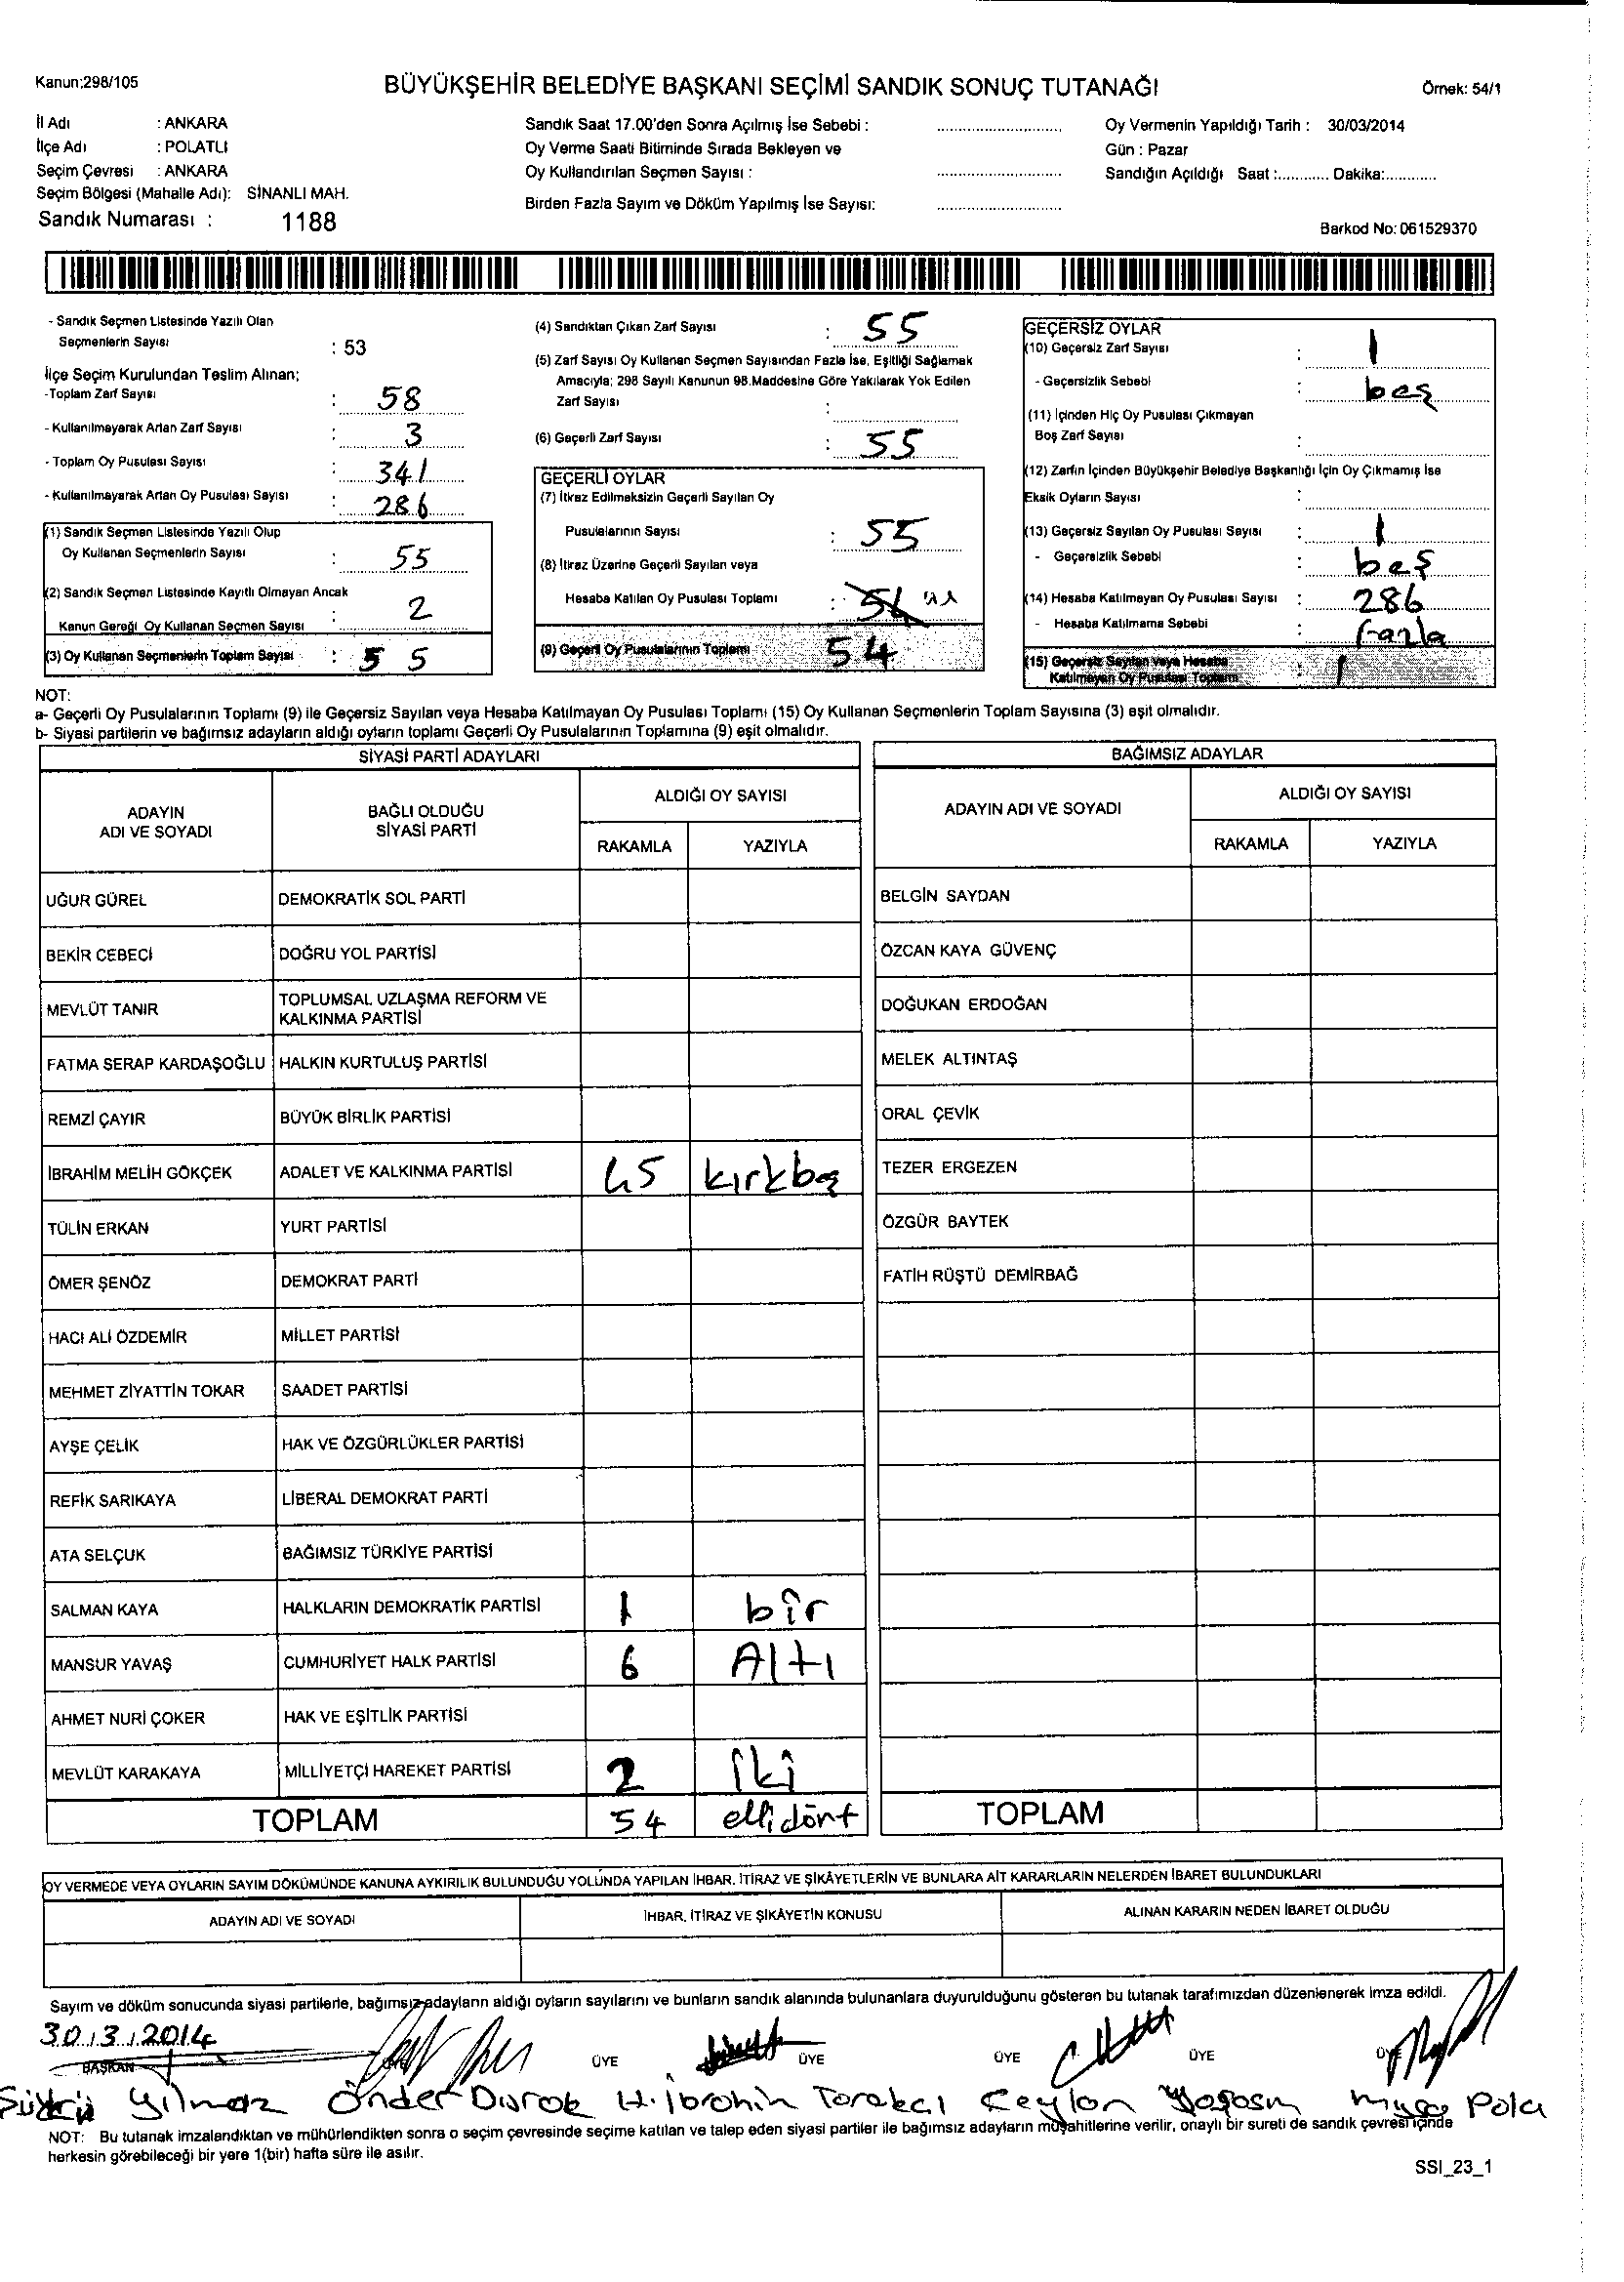 Kanun;298/105
BÜYÜKŞEHİR BELEDİYE BAŞKANI SEÇİMİ SANDIK SONUÇ TUTANAĞI
Örnek: 54/1
İl Adı : ANKARA
İlçe Adı : POLATLI
Seçim Çevresi : ANKARA
Seçim Bölgesi (Mahalle Adı): SİNANLI MAH.
Sandık Numarası : 1188
Sandık Saat 17.00'den Sonra Açılmış İse Sebebi :
Oy Verme Saati Bitiminde Sırada Bekleyen ve
Oy Kullandırılan Seçmen Sayısı :
Birden Fazla Sayım ve Döküm Yapılmış İse Sayısı:
Oy Vermenin Yapıldığı Tarih : 30/03/2014
Gün : Pazar
Sandığın Açıldığı Saat :............ Dakika:............
Barkod No: 061529370
- Sandık Seçmen Listesinde Yazılı Olan
Seçmenlerin Sayısı : 53
İlçe Seçim Kurulundan Teslim Alınan;
-Toplam Zarf Sayısı : 58
- Kullanılmayarak Artan Zarf Sayısı : 3
- Toplam Oy Pusulası Sayısı : 341
- Kullanılmayarak Artan Oy Pusulası Sayısı : 286
(1) Sandık Seçmen Listesinde Yazılı Olup
Oy Kullanan Seçmenlerin Sayısı : 55
(2) Sandık Seçmen Listesinde Kayıtlı Olmayan Ancak
Kanun Gereği Oy Kullanan Seçmen Sayısı : 2
(3) Oy Kullanan Seçmenlerin Toplam Sayısı : 5 5
(4) Sandıktan Çıkan Zarf Sayısı : 55
(5) Zarf Sayısı Oy Kullanan Seçmen Sayısından Fazla İse, Eşitliği Sağlamak
Amacıyla; 298 Sayılı Kanunun 98.Maddesine Göre Yakılarak Yok Edilen
Zarf Sayısı :
(6) Geçerli Zarf Sayısı : 55
GEÇERLİ OYLAR
(7) İtiraz Edilmeksizin Geçerli Sayılan Oy
Pusulalarının Sayısı : 55
(8) İtiraz Üzerine Geçerli Sayılan veya
Hesaba Katılan Oy Pusulası Toplamı :
(9) Geçerli Oy Pusulalarının Toplamı 54
GEÇERSİZ OYLAR
(10) Geçersiz Zarf Sayısı : 1
- Geçersizlik Sebebi : beş
(11) İçinden Hiç Oy Pusulası Çıkmayan
Boş Zarf Sayısı :
(12) Zarfın İçinden Büyükşehir Belediye Başkanlığı İçin Oy Çıkmamış İse
Eksik Oyların Sayısı :
(13) Geçersiz Sayılan Oy Pusulası Sayısı : 1
- Geçersizlik Sebebi : beş
(14) Hesaba Katılmayan Oy Pusulası Sayısı : 286
- Hesaba Katılmama Sebebi : fazla
(15) Geçersiz Sayılan veya Hesaba
Katılmayan Oy Pusulası Toplamı : 1
NOT:
a- Geçerli Oy Pusulalarının Toplamı (9) ile Geçersiz Sayılan veya Hesaba Katılmayan Oy Pusulası Toplamı (15) Oy Kullanan Seçmenlerin Toplam Sayısına (3) eşit olmalıdır.
b- Siyasi partilerin ve bağımsız adayların aldığı oyların toplamı Geçerli Oy Pusulalarının Toplamına (9) eşit olmalıdır.
SİYASİ PARTİ ADAYLARI
ADAYIN ADI VE SOYADI
BAĞLI OLDUĞU SİYASİ PARTİ
ALDIĞI OY SAYISI
RAKAMLA YAZIYLA
UĞUR GÜREL DEMOKRATİK SOL PARTİ
BEKİR CEBECİ DOĞRU YOL PARTİSİ
MEVLÜT TANIR TOPLUMSAL UZLAŞMA REFORM VE
KALKINMA PARTİSİ
FATMA SERAP KARDAŞOĞLU HALKIN KURTULUŞ PARTİSİ
REMZİ ÇAYIR BÜYÜK BİRLİK PARTİSİ
İBRAHİM MELİH GÖKÇEK ADALET VE KALKINMA PARTİSİ 45 kırkbeş
TÜLİN ERKAN YURT PARTİSİ
ÖMER ŞENÖZ DEMOKRAT PARTİ
HACI ALİ ÖZDEMİR MİLLET PARTİSİ
MEHMET ZİYATTİN TOKAR SAADET PARTİSİ
AYŞE ÇELİK HAK VE ÖZGÜRLÜKLER PARTİSİ
REFİK SARIKAYA LİBERAL DEMOKRAT PARTİ
ATA SELÇUK BAĞIMSIZ TÜRKİYE PARTİSİ
SALMAN KAYA HALKLARIN DEMOKRATİK PARTİSİ 1 bir
MANSUR YAVAŞ CUMHURİYET HALK PARTİSİ 6 Altı
AHMET NURİ ÇOKER HAK VE EŞİTLİK PARTİSİ
MEVLÜT KARAKAYA MİLLİYETÇİ HAREKET PARTİSİ 2 İki
TOPLAM 54 ellidört
BAĞIMSIZ ADAYLAR
ADAYIN ADI VE SOYADI
ALDIĞI OY SAYISI
RAKAMLA YAZIYLA
BELGİN SAYDAN
ÖZCAN KAYA GÜVENÇ
DOĞUKAN ERDOĞAN
MELEK ALTINTAŞ
ORAL ÇEVİK
TEZER ERGEZEN
ÖZGÜR BAYTEK
FATİH RÜŞTÜ DEMİRBAĞ
TOPLAM
OY VERMEDE VEYA OYLARIN SAYIM DÖKÜMÜNDE KANUNA AYKIRILIK BULUNDUĞU YOLUNDA YAPILAN İHBAR, İTİRAZ VE ŞİKÂYETLERİN VE BUNLARA AİT KARARLARIN NELERDEN İBARET BULUNDUKLARI
ADAYIN ADI VE SOYADI İHBAR, İTİRAZ VE ŞİKÂYETİN KONUSU ALINAN KARARIN NEDEN İBARET OLDUĞU
Sayım ve döküm sonucunda siyasi partilerle, bağımsız adayların aldığı oyların sayılarını ve bunların sandık alanında bulunanlara duyurulduğunu gösteren bu tutanak tarafımızdan düzenlenerek imza edildi.
30.3.2014
BAŞKAN ÜYE ÜYE ÜYE ÜYE ÜYE
Şükrü Yılmaz Önder Durak H.İbrahim Tarakcı Ceylan Musa Pola
NOT: Bu tutanak imzalandıktan ve mühürlendikten sonra o seçim çevresinde seçime katılan ve talep eden siyasi partiler ile bağımsız adayların müşahitlerine verilir, onaylı bir sureti de sandık çevresi içinde
herkesin görebileceği bir yere 1(bir) hafta süre ile asılır.
SSI_23_1